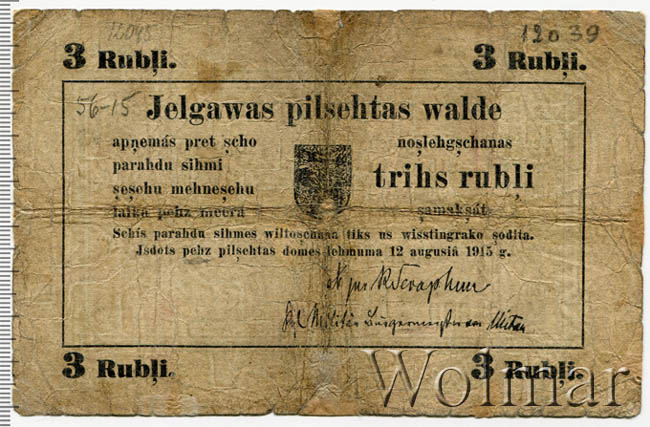 12039
3 Rubļi. 3 Rubļi.
56-15
Jelgawas pilsehtas walde
apņemás pret șcho
parahdu sihmi
șeșchu mehneșchu
laika pehz meera
noșlehgșchanas
trihs rubļi
șamakșát
Schis parahdu sihmes wiltoșchana tiks us wisstingrako șodita.
Jsdots pehz pilșehtas domes lehmuma 12 augusiá 1915 g.
3 Rubļi. 3 Rubļi.
Wolmar